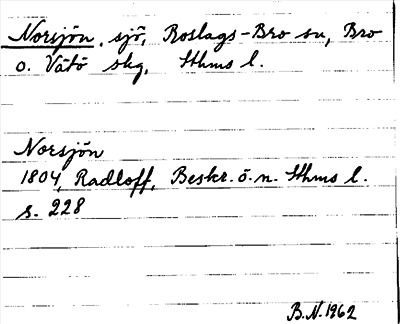 Norsjön, sjö, Roslags-Bro sn, Bro
o. Vätö skg, Sthms l.
Norsjön
1804, Radloff, Beskr. ö. n. Sthms l.
s. 228
B.N. 1962